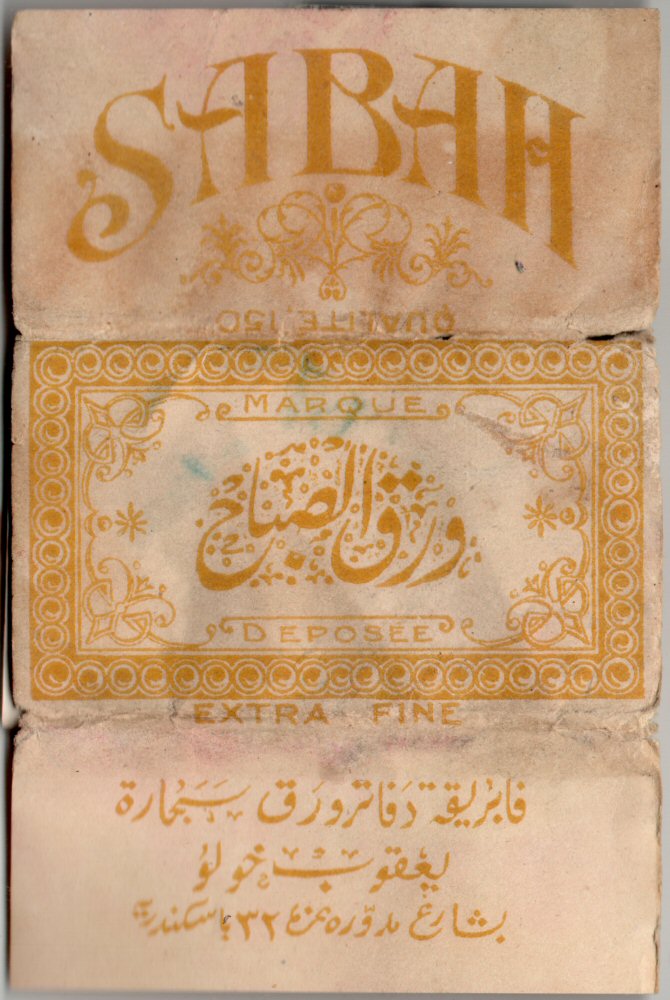 SABAH
QUALITE.150
MARQUE
ورق الصباح
DEPOSÉE
EXTRA FINE
فابريقة دفاتر ورق سجارة
يعقوب خولو
بشارع مدوره نمره ٣٢ باسكندرية